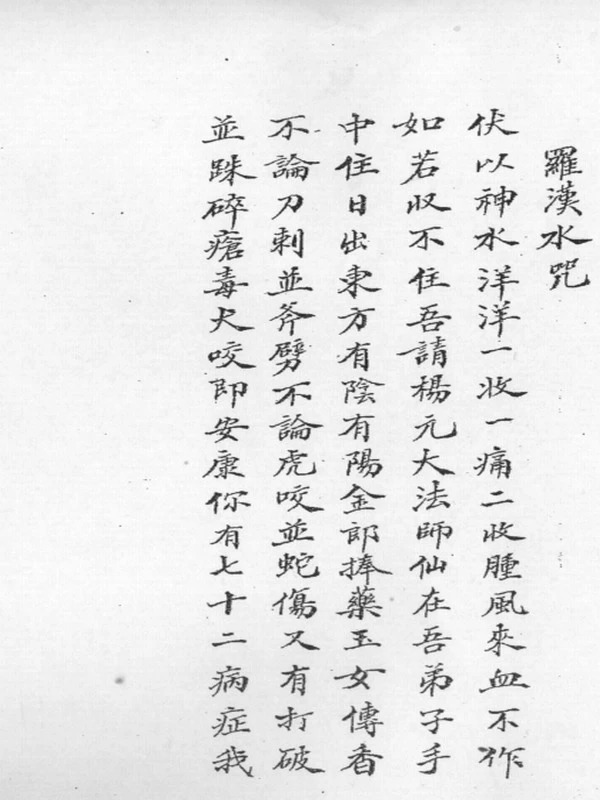 羅漢水咒
伏以神水洋洋一收一痛二收腫風來血不作
如若收不住吾請楊元大法師仙在吾弟子手
中住日出東方有陰有陽金郎捧藥玉女傳香
不論刀刺並斧劈不論虎咬並蛇傷又有打破
並跌碎瘡毒犬咬即安康你有七十二病症我